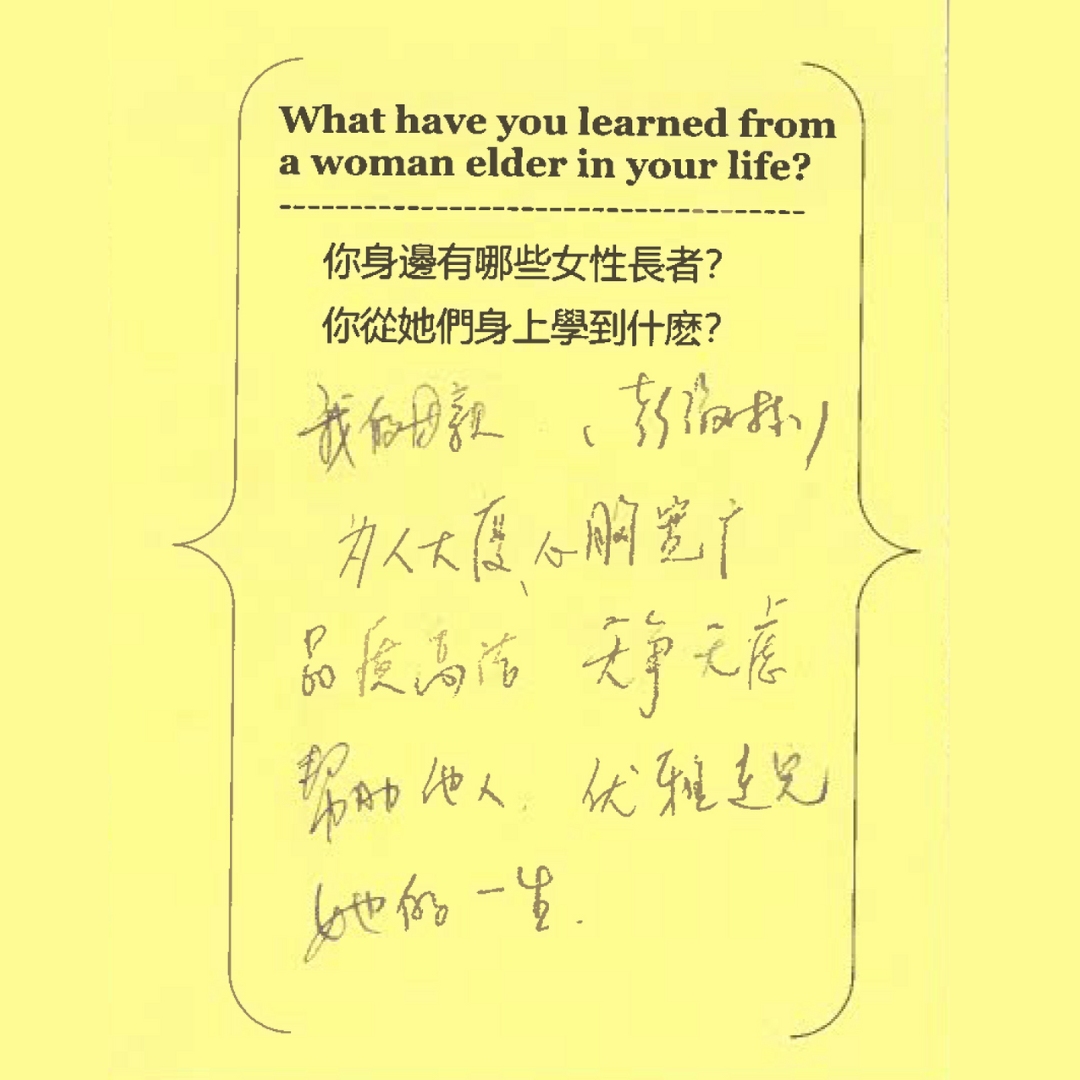 What have you learned from
a woman elder in your life?
你身邊有哪些女性長者?
你從她們身上學到什麽?
我的母親 (彭淑林)
为人大度、心胸宽广
品质高洁 无争无虑
帮助他人 优雅走完
她的一生.